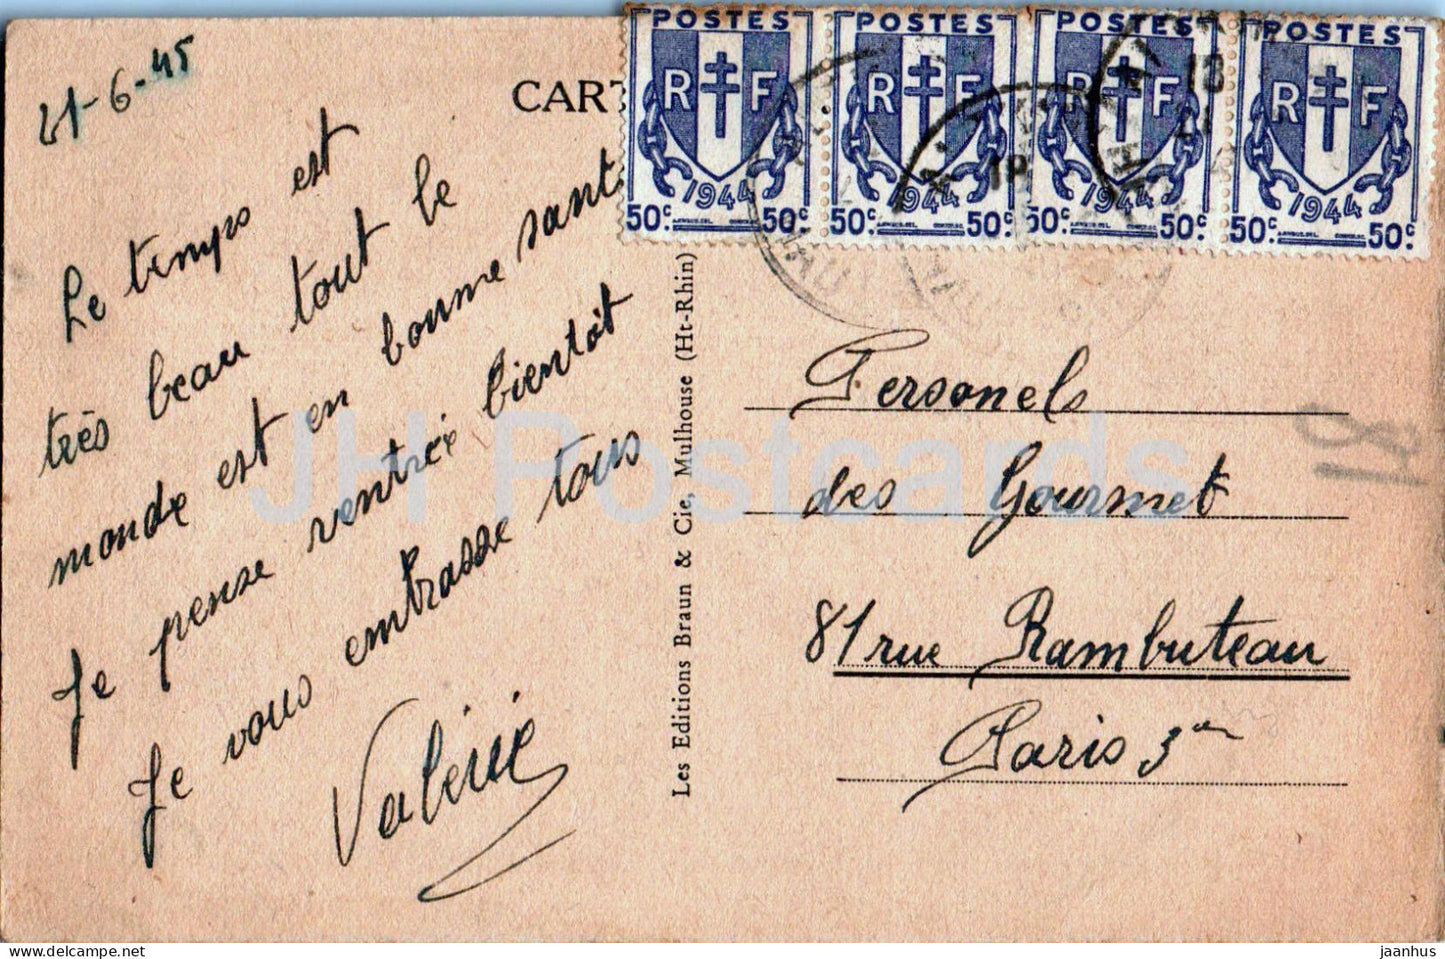 21-6-45
CART
Le temps est
très beau tout le
monde est en bonne sant
Je pense rentré bientôt
Je vous embrasse tous
Valérie
Les Editions Braun & Cie, Mulhouse (Ht-Rhin)
POSTES POSTES POSTES POSTES
RF RF RF RF
1944 1944 1944 1944
50c. 50c. 50c. 50c. 50c. 50c. 50c. 50c.
Personels
des Gourmet
81 rue Rambuteau
Paris 3em
18
JH Postcards
jaanhus